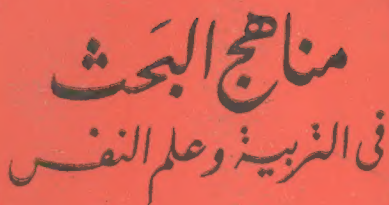 مناهج البحث
فى التربية وعلم النفس